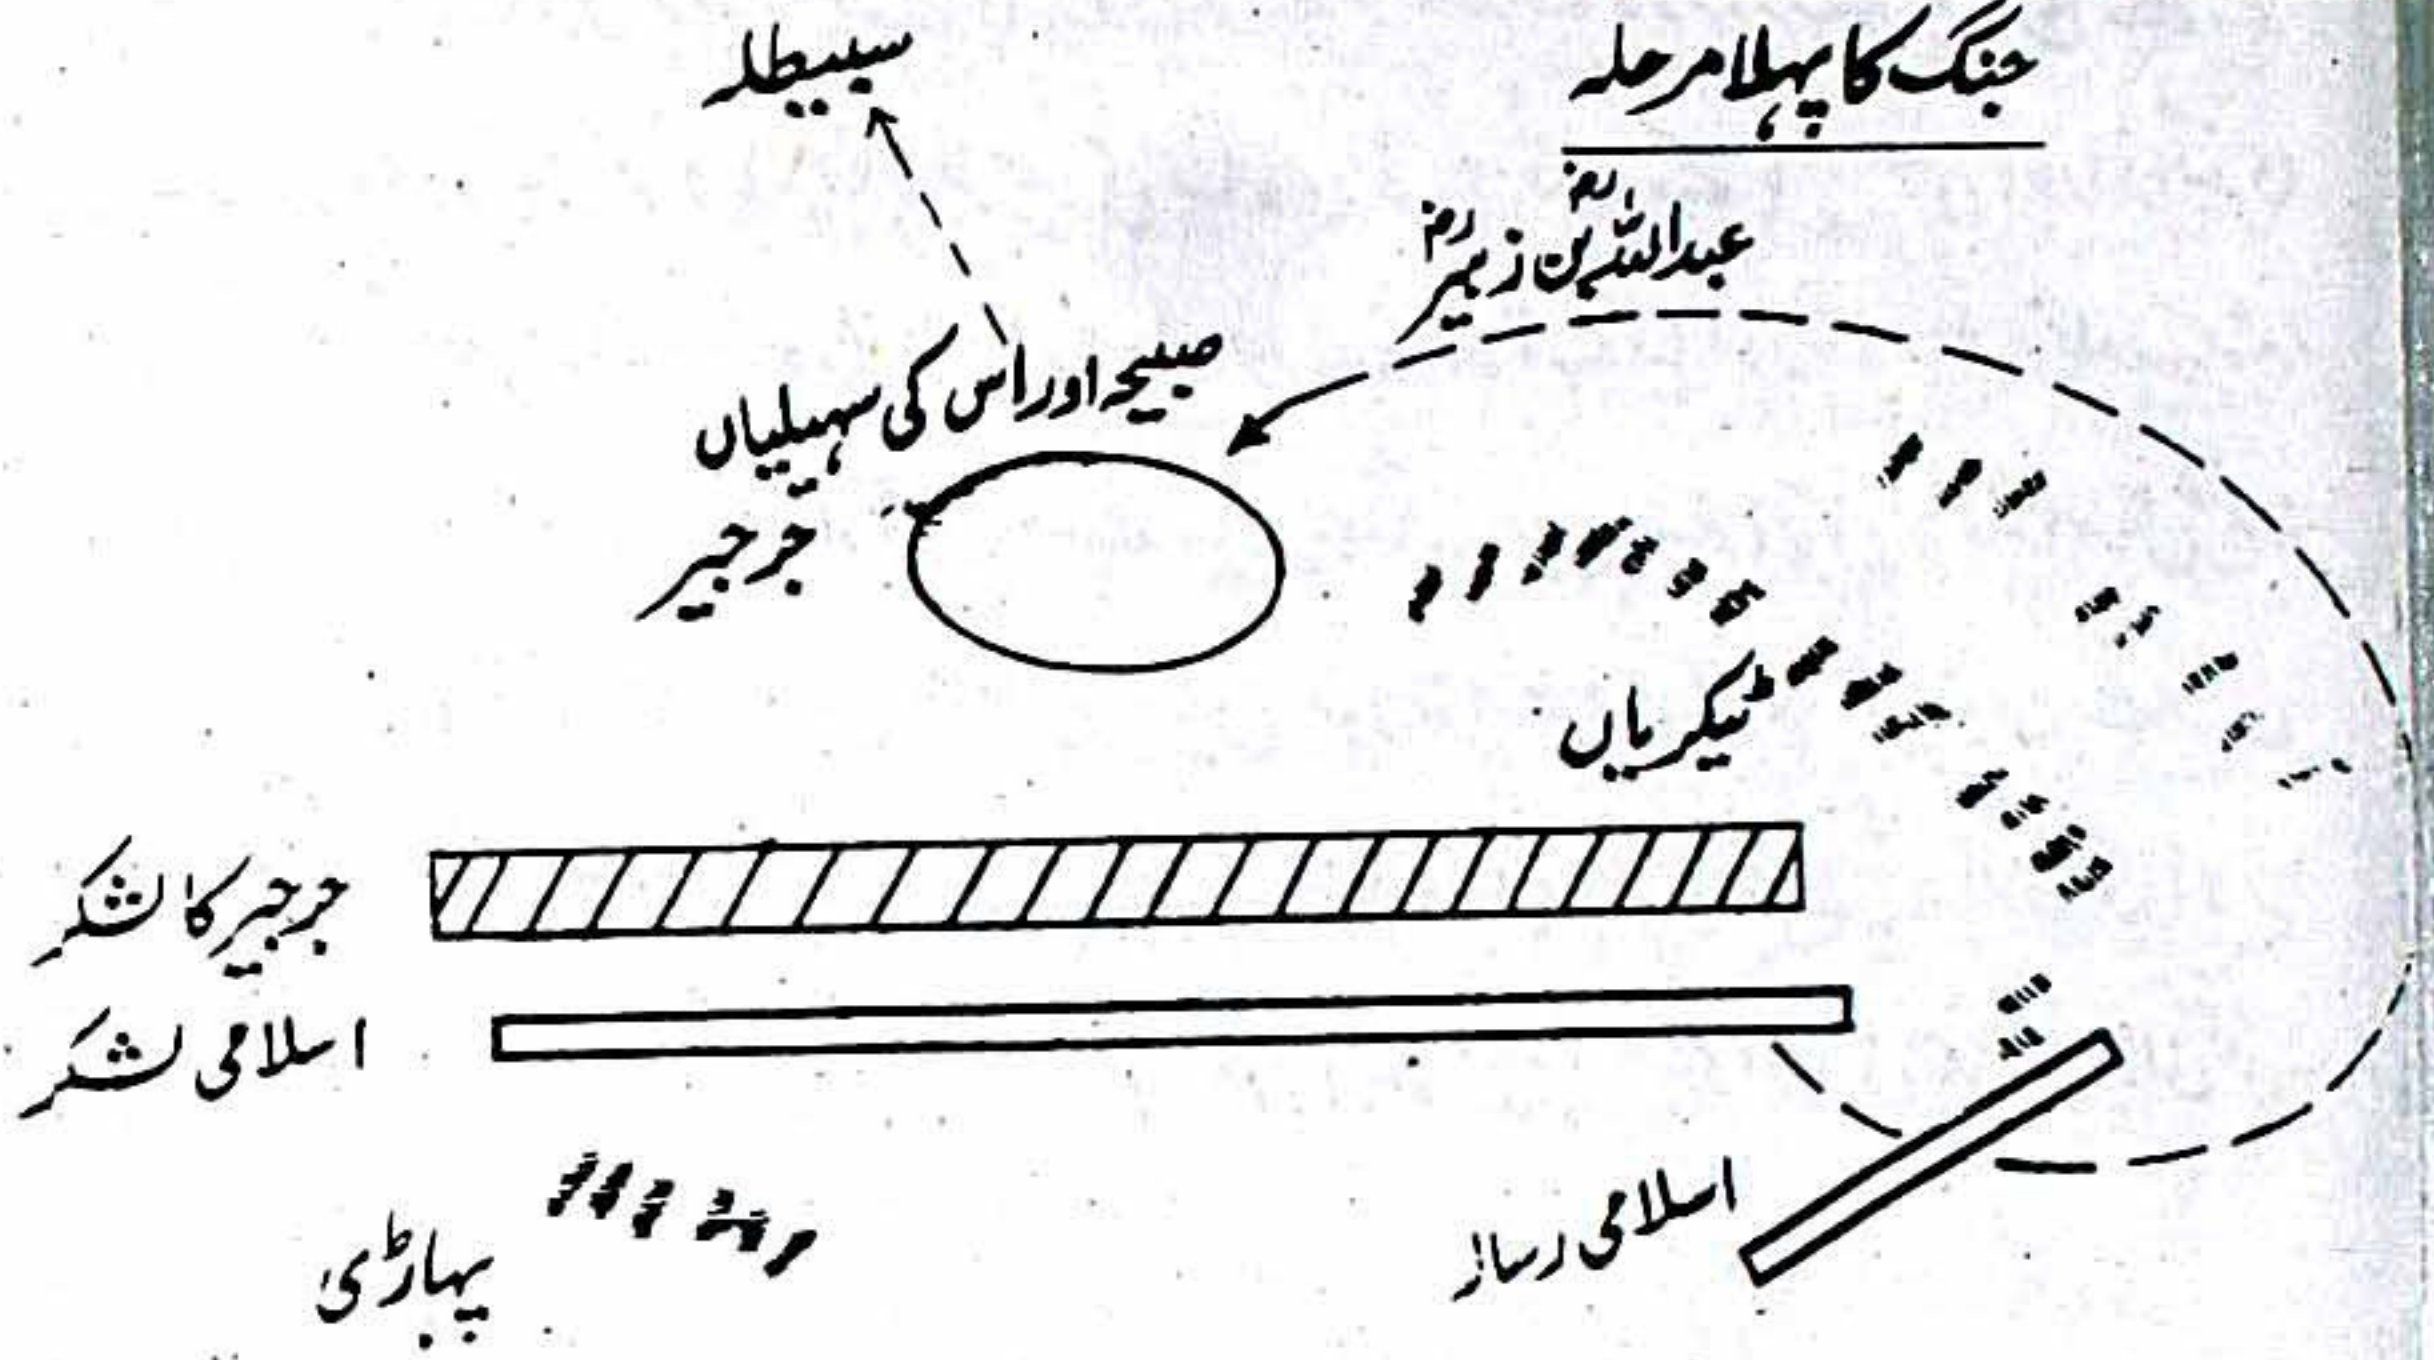 جنگ کا پہلا مرحلہ
سبیطلہ
عبداللہؓ بن زبیرؓ
صبیحہ اور اس کی سہیلیاں
جرجیر
ٹیکریاں
جرجیر کا لشکر
اسلامی لشکر
اسلامی رسالہ
پہاڑی